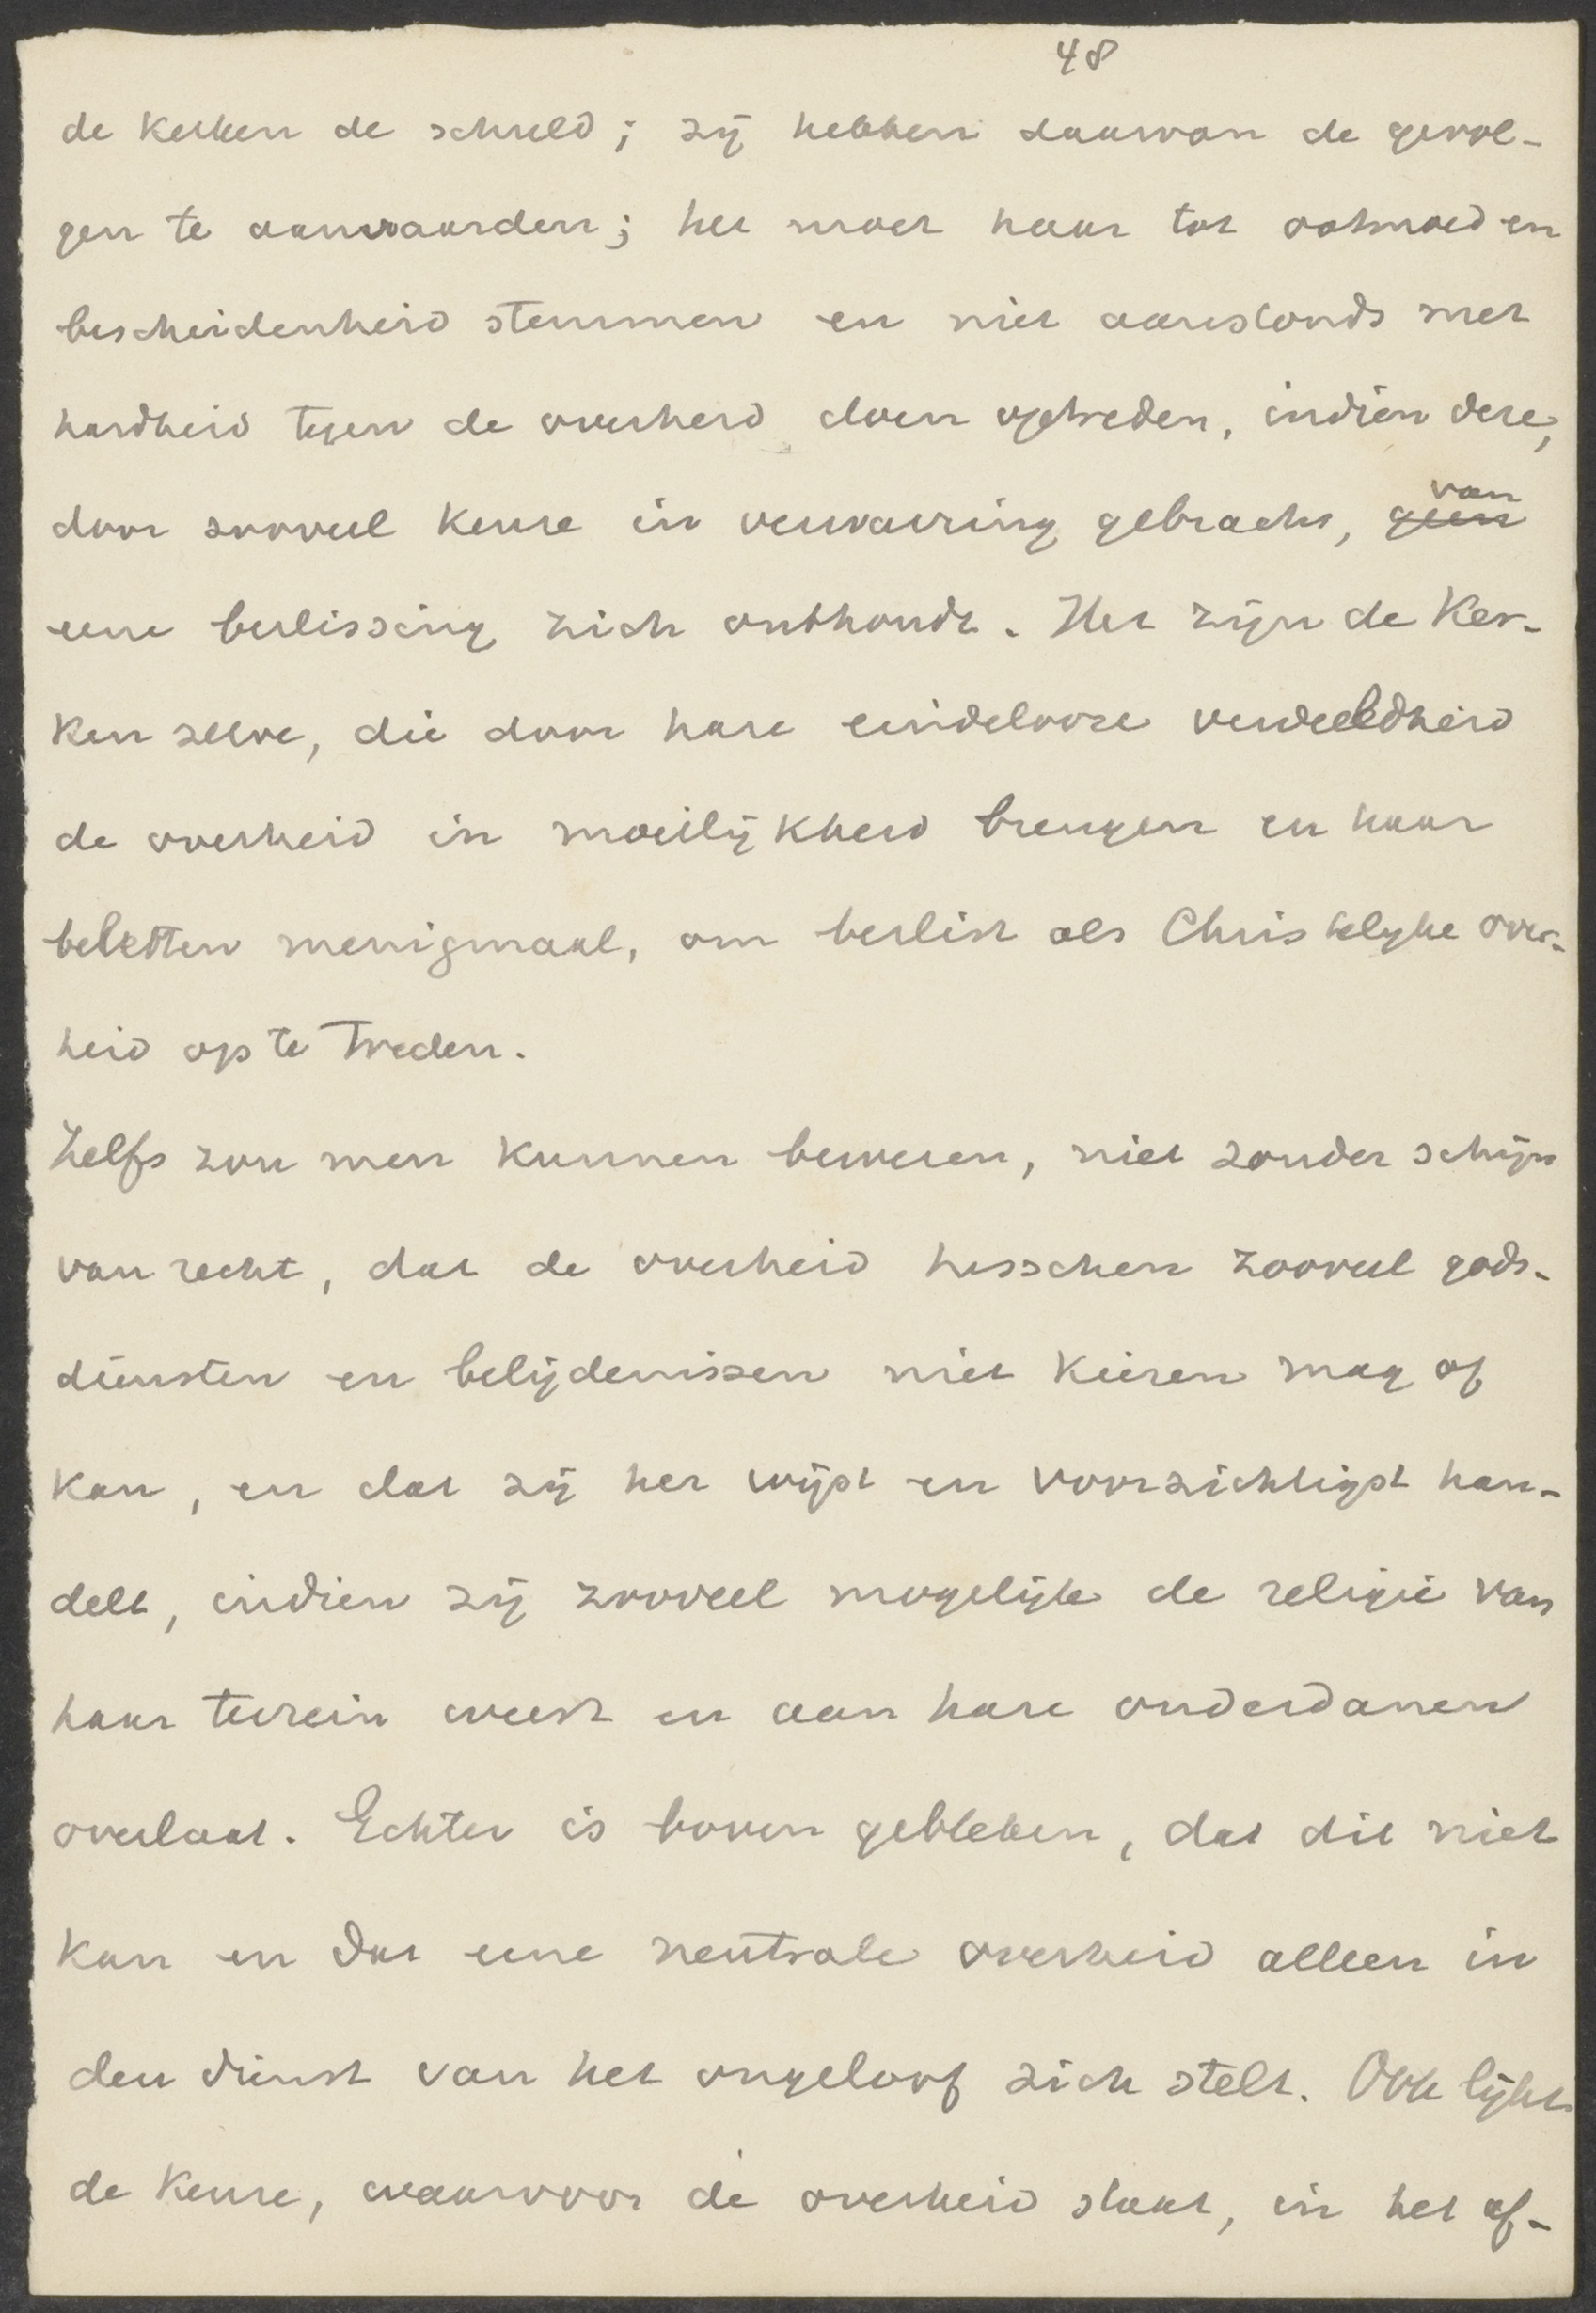 48
de Kerken de schuld; zij hebben daarvan de gevol-
gen te aanvaarden; het moet haar tot ootmoed en
bescheidenheid stemmen en niet aanstonds met
hardheid tegen de overheid doen optreden, indien deze,
door zooveel keuze in verwarring gebracht, geen van
eene beslissing zich onthoudt. Het zijn de Ker-
ken zelve, die door hare eindelooze verdeeldheid
de overheid in moeilijkheid brengen en haar
beletten menigmaal, om beslist als Christelijke over-
heid op te treden.
Zelfs zou men kunnen beweren, niet zonder schijn
van recht, dat de overheid tusschen zooveel gods-
diensten en belijdenissen niet kiezen mag of
kan, en dat zij het wijst en voorzichtigst han-
delt, indien zij zooveel mogelijk de religie van
haar terrein weert en aan hare onderdanen
overlaat. Echter is boven gebleken, dat dit niet
kan en dat eene neutrale overheid alleen in
den dienst van het ongeloof zich stelt. Ook lijkt
de keuze, waarvoor de overheid staat, in het af-